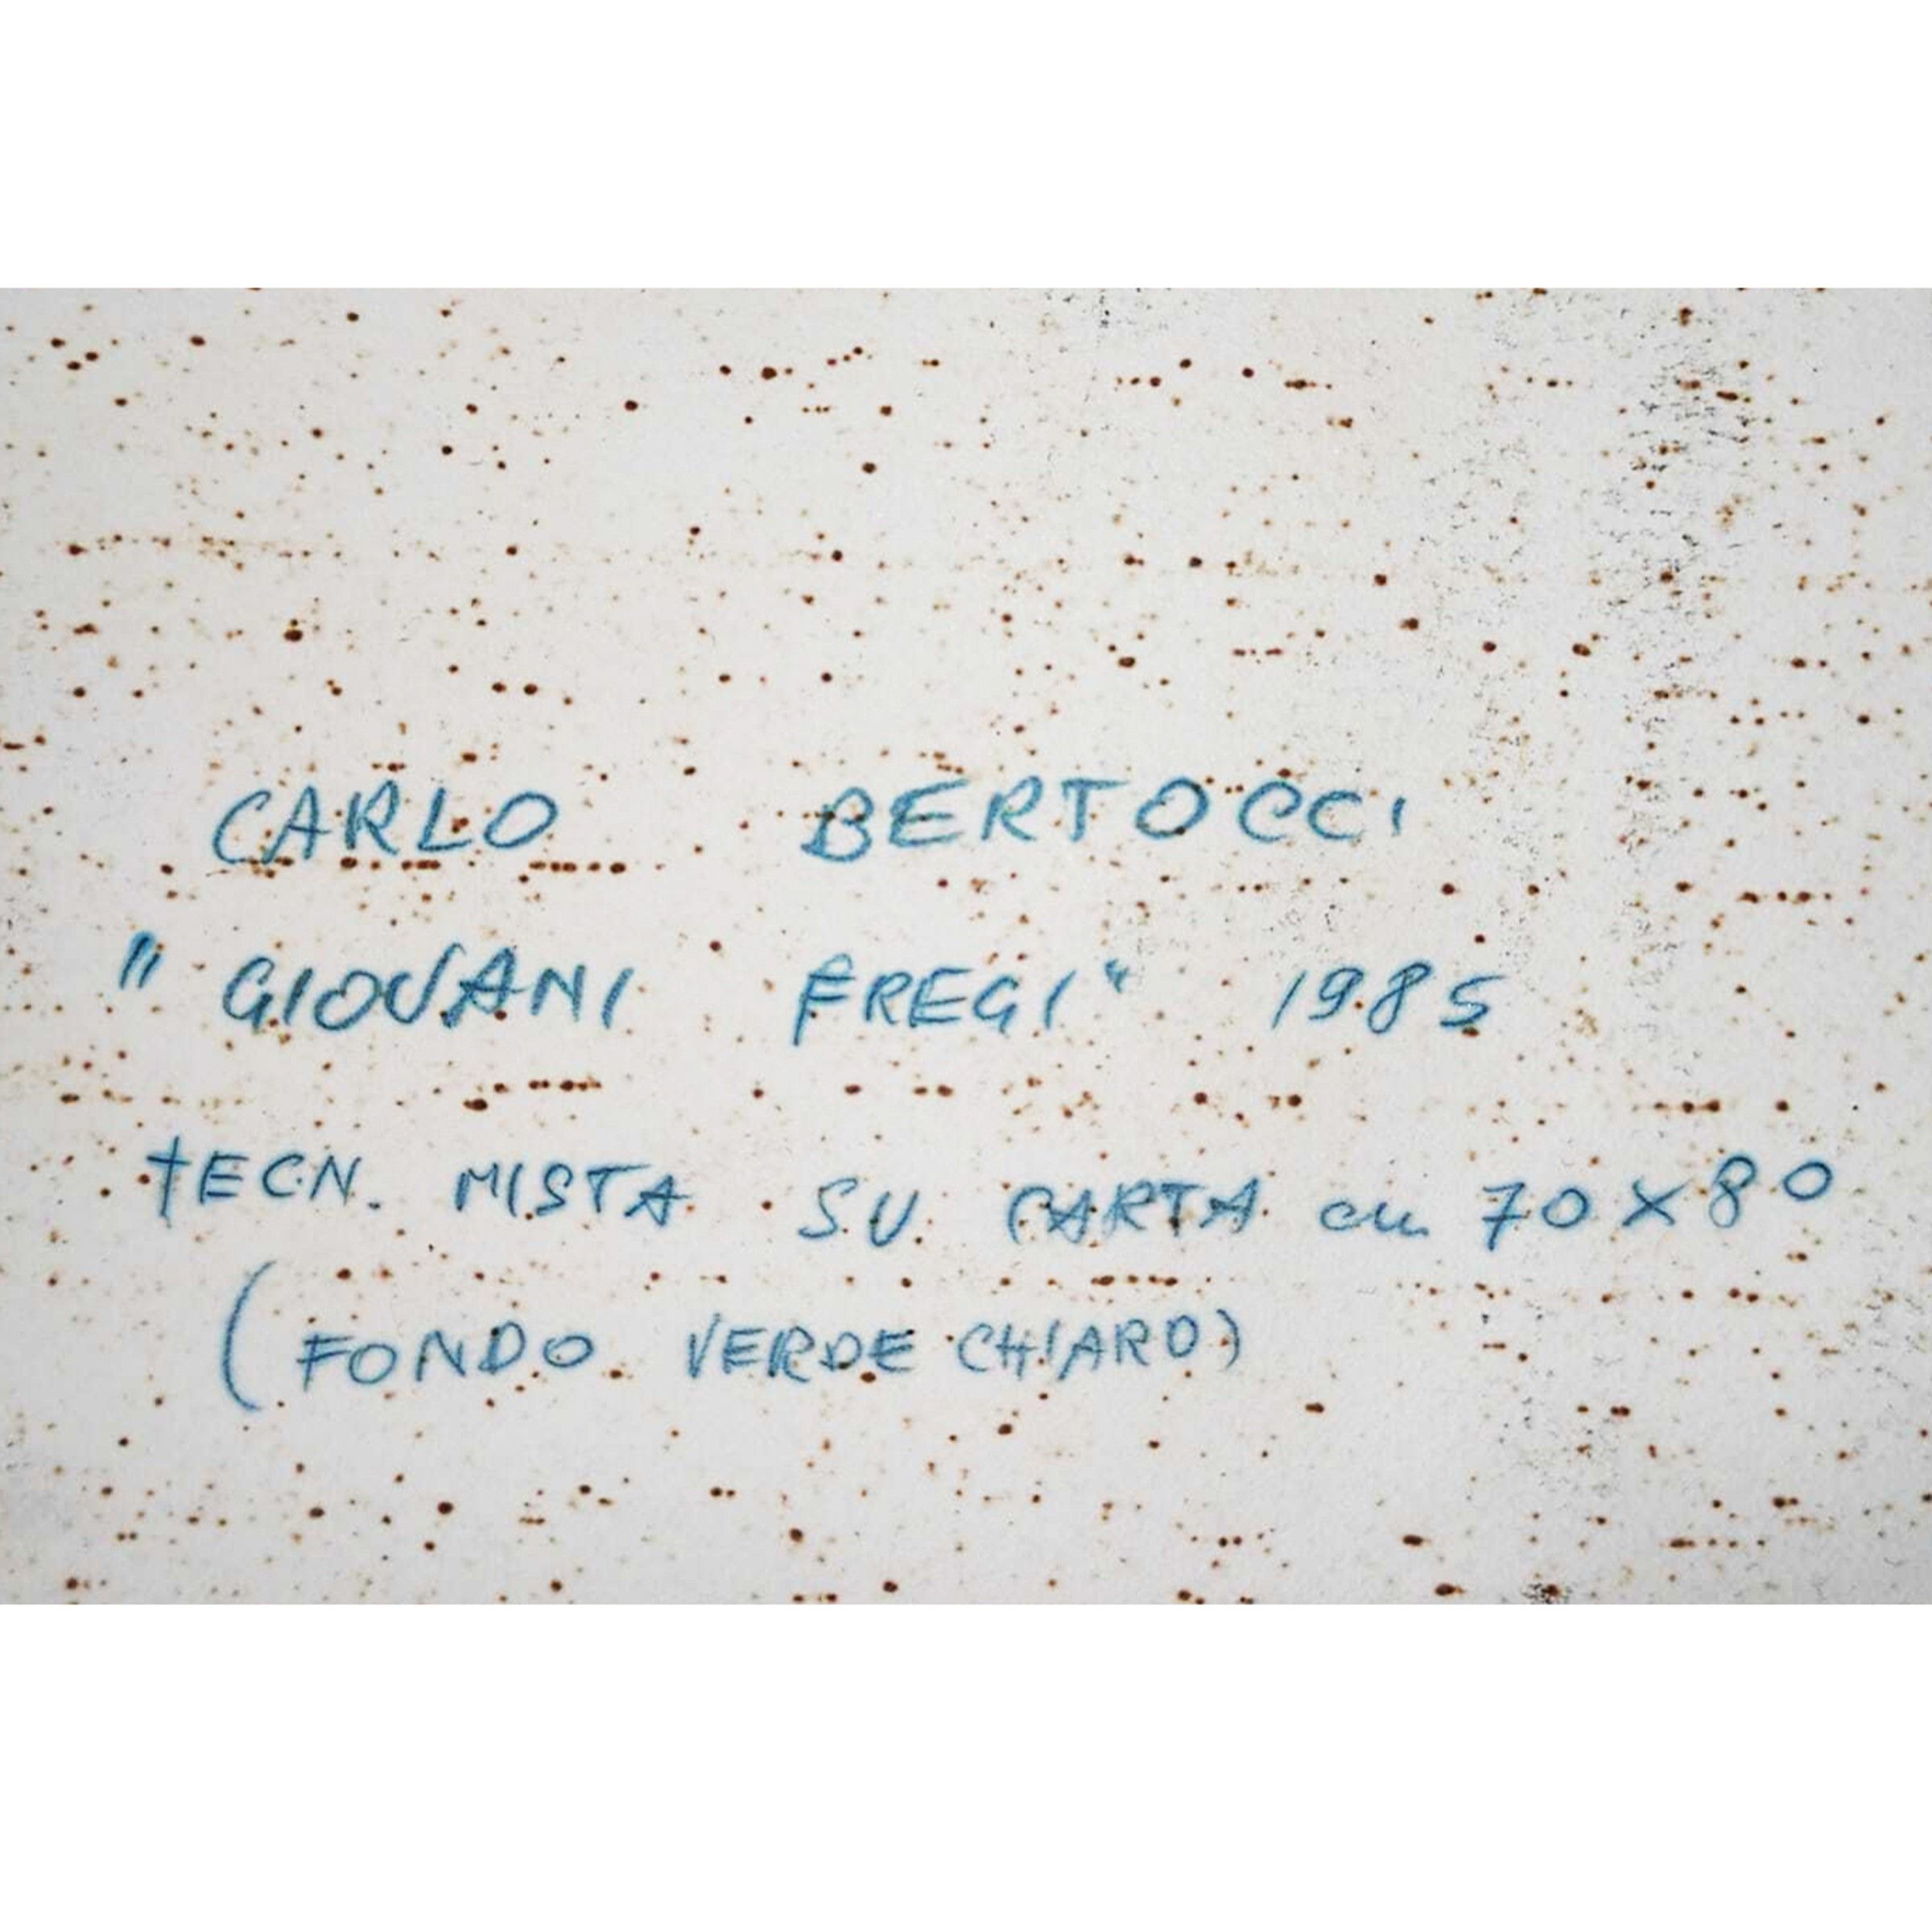 CARLO BERTOCCI
"GIOVANI FREGI" 1985
TECN. MISTA SU CARTA cm 70X80
(FONDO VERDE CHIARO)